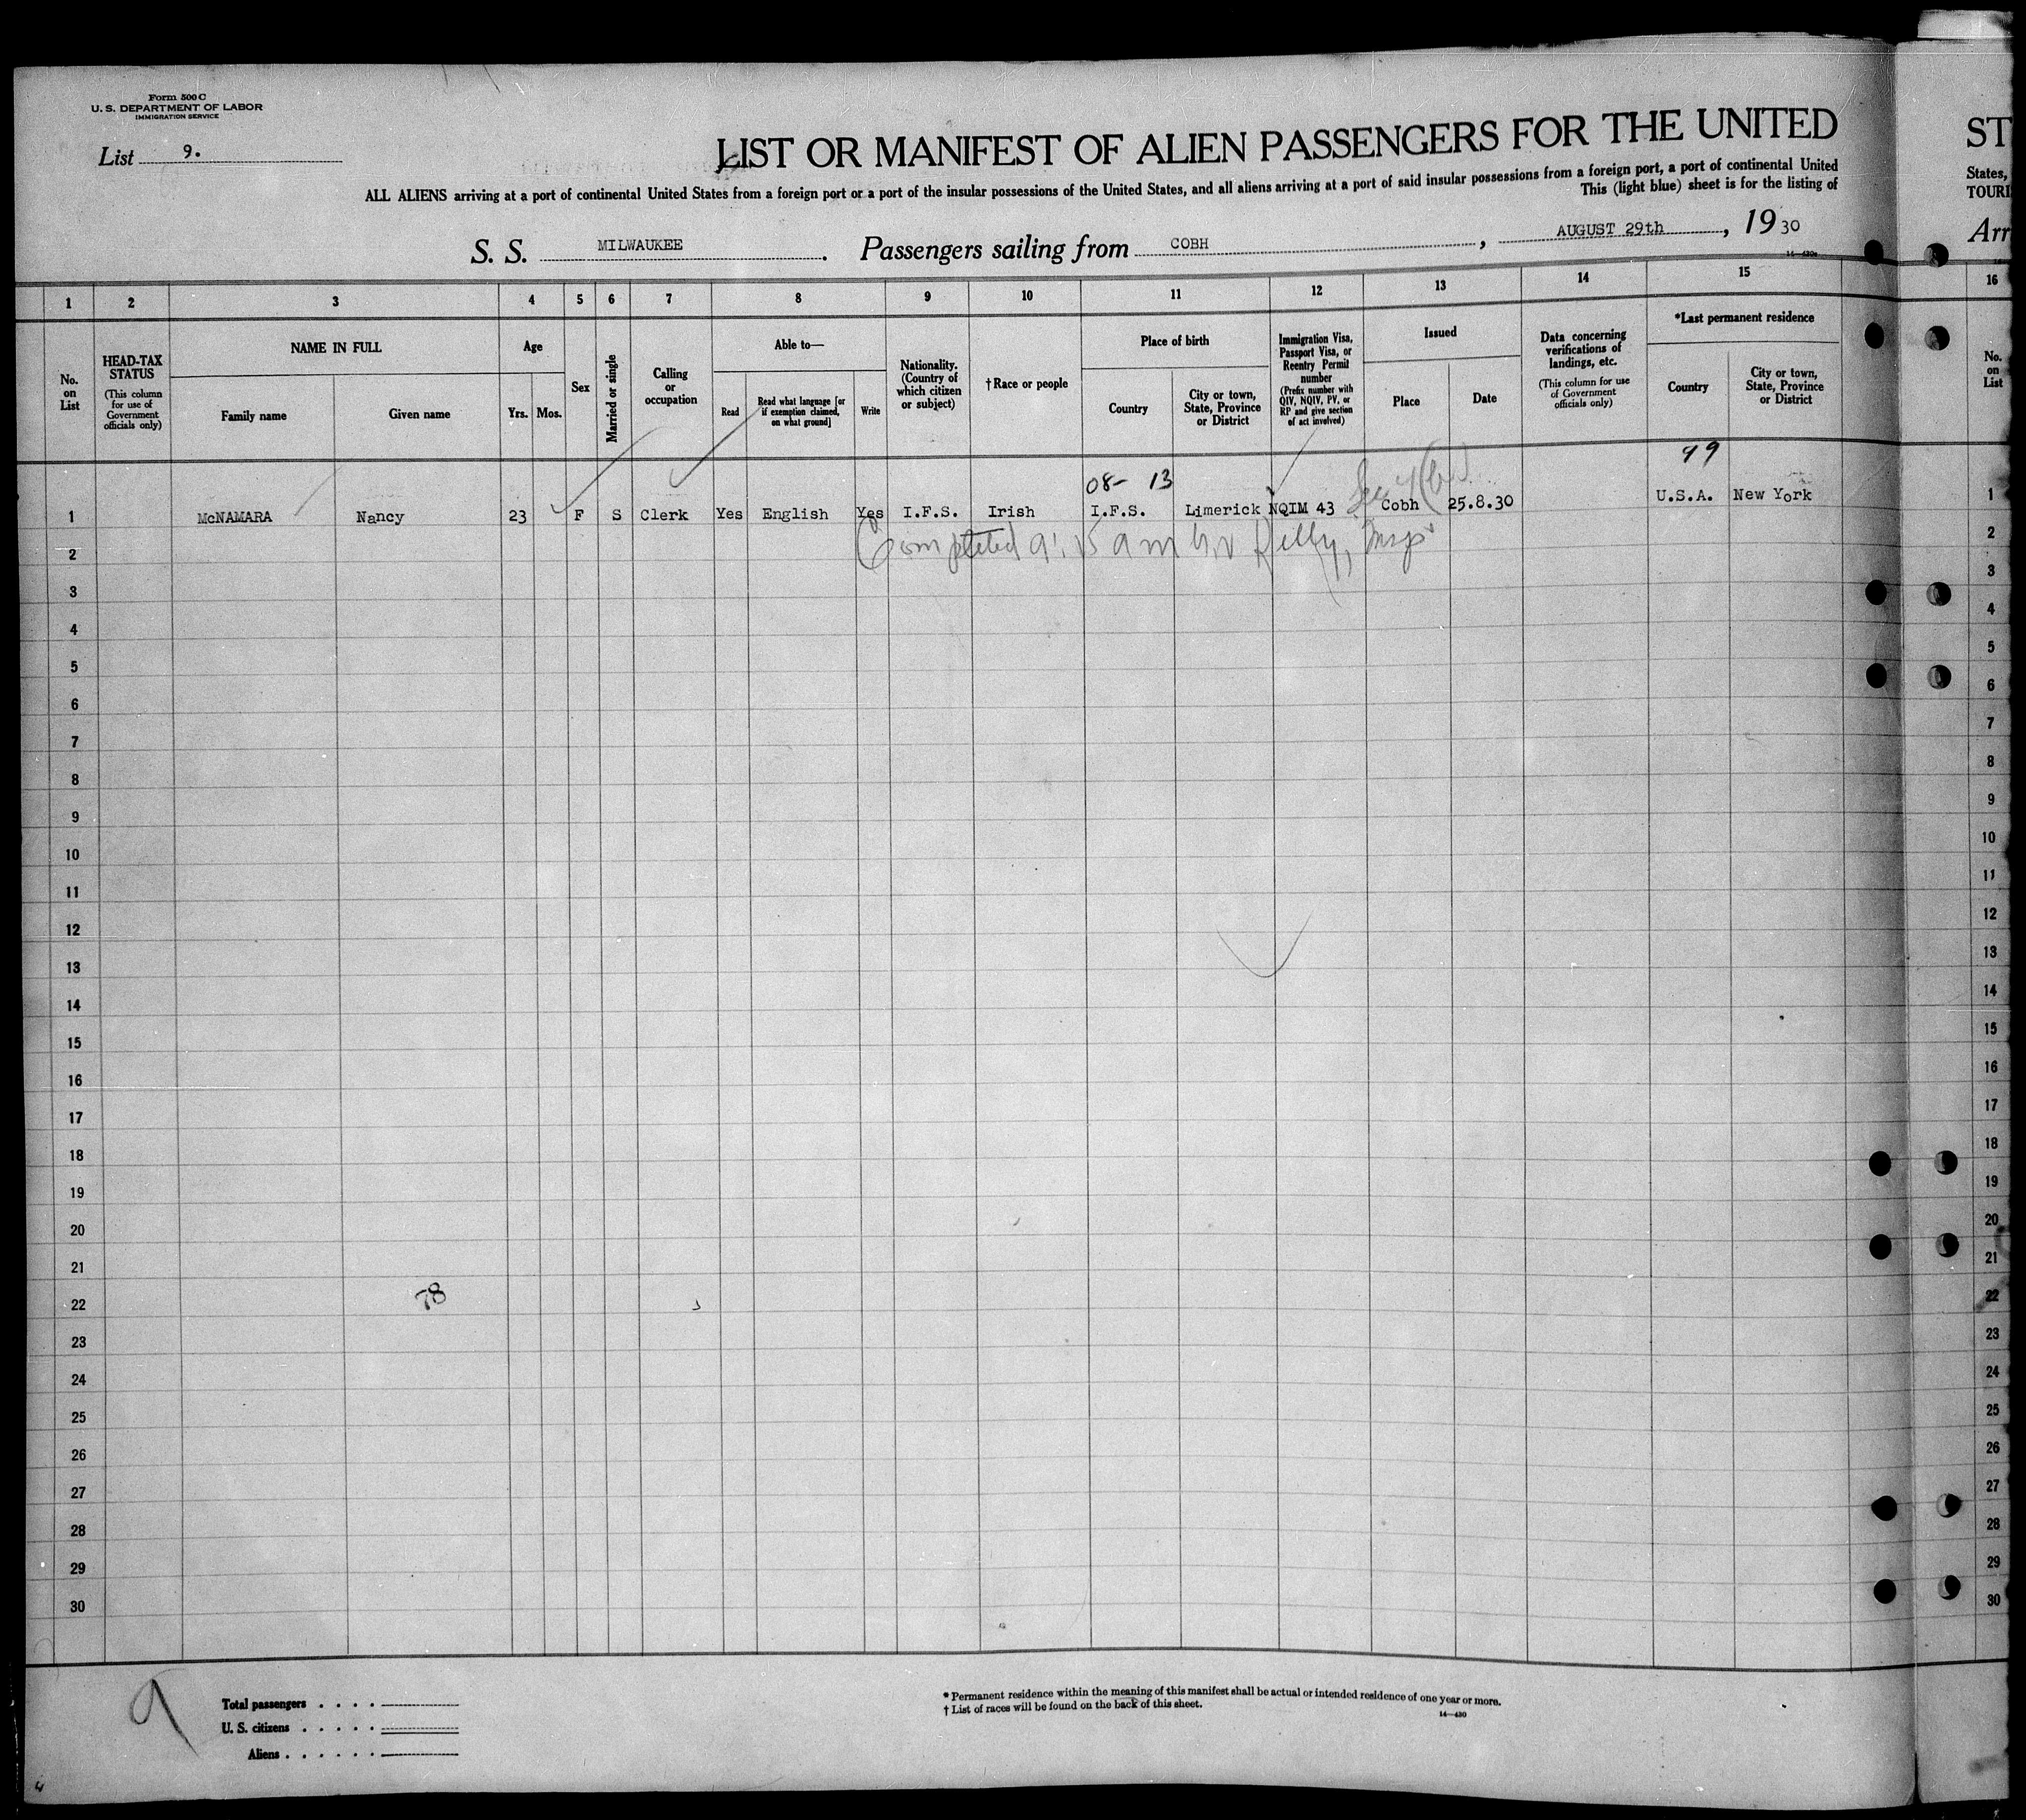 Form 500 C
U. S. DEPARTMENT OF LABOR
IMMIGRATION SERVICE
List 9.
LIST OR MANIFEST OF ALIEN PASSENGERS FOR THE UNITED
ALL ALIENS arriving at a port of continental United States from a foreign port or a port of the insular possessions of the United States, and all aliens arriving at a port of said insular possessions from a foreign port, a port of continental United
This (light blue) sheet is for the listing of
S. S. MILWAUKEE. Passengers sailing from COBH, AUGUST 29th, 19 30
1 2 3 4 5 6 7 8 9 10 11 12 13 14 15
No. on List
HEAD-TAX STATUS
(This column for use of Government officials only)
NAME IN FULL
Family name Given name
Age
Yrs. Mos.
Sex
Married or single
Calling or occupation
Able to—
Read
Read what language [or if exemption claimed, on what ground]
Write
Nationality. (Country of which citizen or subject)
†Race or people
Place of birth
Country
City or town, State, Province or District
Immigration Visa, Passport Visa, or Reentry Permit number
(Prefix number with QIV, NQIV, PV, or RP and give section of act involved)
Issued
Place Date
Data concerning verifications of landings, etc.
(This column for use of Government officials only)
*Last permanent residence
Country
City or town, State, Province or District
08- 13 99
1 McNAMARA Nancy 23 F S Clerk Yes English Yes I.F.S. Irish I.F.S. Limerick NQIM 43 Cobh 25.8.30 U.S.A. New York
2 Completed
3
4
5
6
7
8
9
10
11
12
13
14
15
16
17
18
19
20
21
22 78
23
24
25
26
27
28
29
30
9
Total passengers
U. S. citizens
Aliens
* Permanent residence within the meaning of this manifest shall be actual or intended residence of one year or more.
† List of races will be found on the back of this sheet.
14—430
ST
States,
TOURI
Arr
16
No. on List
1
2
3
4
5
6
7
8
9
10
11
12
13
14
15
16
17
18
19
20
21
22
23
24
25
26
27
28
29
30